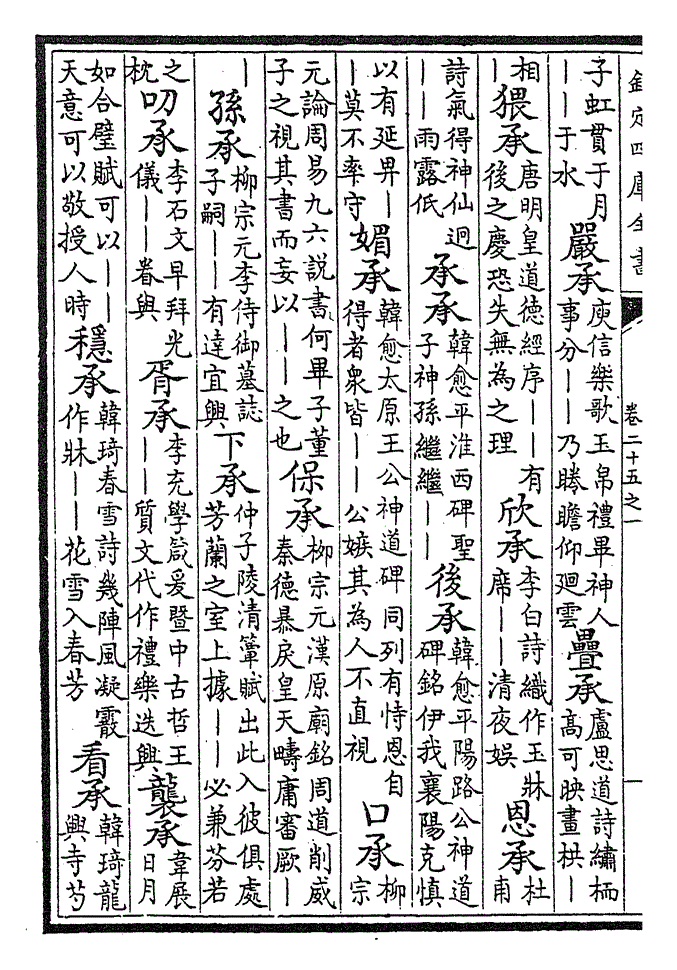 欽定四庫全書
卷二十五之一
一
子虹貫于月
——于水
嚴承
庾信樂歌玉帛禮畢神人
事分——乃睠瞻仰廻雲
疊承
盧思道詩繡栭
高可映畫栱—
相
—
猥承
唐明皇道德經序——有
後之慶恐失無為之理
欣承
李白詩織作玉牀
席——清夜娛
恩承
杜
甫
詩氣得神仙迥
——雨露低
承承
韓愈平淮西碑聖
子神孫繼繼——
後承
韓愈平陽路公神道
碑銘伊我襄陽克慎
以有延畀—
—莫不率守
媚承
韓愈太原王公神道碑同列有恃恩自
得者衆皆——公嫉其為人不直視
口承
柳
宗
元論周易九六説書何畢子董
子之視其書而妄以——之也
保承
柳宗元漢原廟銘周道削威
秦德暴戾皇天疇庸審厥—
—
孫承
柳宗元李侍御墓誌
子嗣——有達宜興
下承
仲子陵清簟賦出此入彼俱處
芳蘭之室上據——必兼芬若
之
枕
叨承
李石文早拜光
儀——眷與
胥承
李充學箴爰暨中古哲王
——質文代作禮樂迭興
襲承
韋展
日月
如合璧賦可以——
天意可以敬授人時
穩承
韓琦春雪詩幾陣風凝霰
作牀——花雪入春芳
看承
韓琦龍
興寺芍